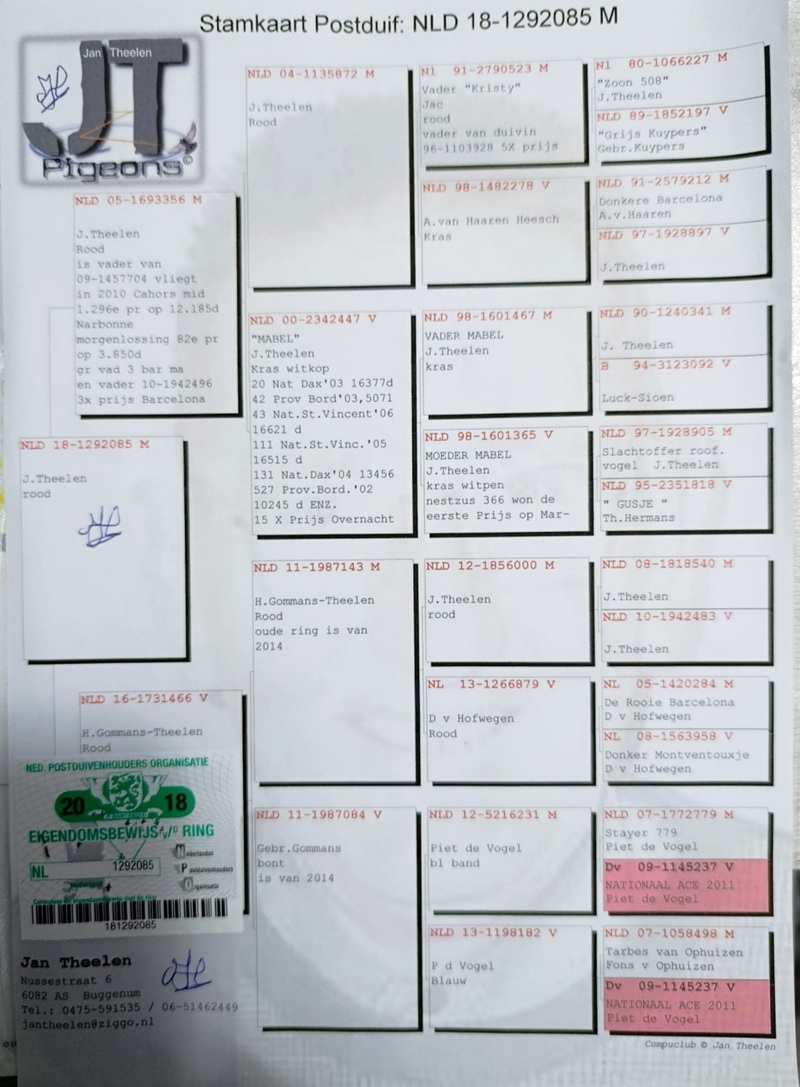 Stamkaart Postduif: NLD 18-1292085 M
Jan Theelen
JT
Pigeons©
NLD 05-1693356 M
J.Theelen
Rood
is vader van
09-1457704 vliegt
in 2010 Cahors mid
1.296e pr op 12.185d
Narbonne
morgenlossing 82e pr
op 3.850d
gr vad 3 bar ma
en vader 10-1942496
3x prijs Barcelona
NLD 18-1292085 M
J.Theelen
rood
NLD 16-1731466 V
H.Gommans-Theelen
Rood
NLD 04-1135872 M
J.Theelen
Rood
NLD 00-2342447 V
"MABEL"
J.Theelen
Kras witkop
20 Nat Dax'03 16377d
42 Prov Bord'03,5071
43 Nat.St.Vincent'06
16621 d
111 Nat.St.Vinc.'05
16515 d
131 Nat.Dax'04 13456
527 Prov.Bord.'02
10245 d ENZ.
15 X Prijs Overnacht
NLD 11-1987143 M
H.Gommans-Theelen
Rood
oude ring is van
2014
NLD 11-1987084 V
Gebr.Gommans
bont
is van 2014
Nl 91-2790523 M
Vader "Kristy"
Jac
rood
vader van duivin
96-1103928 5X prijs
NLD 98-1482278 V
A.van Haaren Heesch
Kras
NLD 98-1601467 M
VADER MABEL
J.Theelen
kras
NLD 98-1601365 V
MOEDER MABEL
J.Theelen
kras witpen
nestzus 366 won de
eerste Prijs op Mar-
NLD 12-1856000 M
J.Theelen
rood
NL 13-1266879 V
D v Hofwegen
Rood
NLD 12-5216231 M
Piet de Vogel
bl band
NLD 13-1198182 V
P d Vogel
Blauw
Nl 80-1066227 M
"Zoon 508"
J.Theelen
NLD 89-1852197 V
"Grijs Kuypers"
Gebr.Kuypers
NLD 91-2579212 M
Donkere Barcelona
A.v.Haaren
NLD 97-1928897 V
J.Theelen
NLD 90-1240341 M
J. Theelen
B 94-3123092 V
Luck-Sioen
NLD 97-1928905 M
Slachtoffer roof.
vogel J.Theelen
NLD 95-2351818 V
" GUSJE "
Th.Hermans
NLD 08-1818540 M
J.Theelen
NLD 10-1942483 V
J.Theelen
NL 05-1420284 M
De Rooie Barcelona
D v Hofwegen
NL 08-1563958 V
Donker Montventouxje
D v Hofwegen
NLD 07-1772779 M
Stayer 779
Piet de Vogel
Dv 09-1145237 V
NATIONAAL ACE 2011
Piet de Vogel
NLD 07-1058498 M
Tarbes van Ophuizen
Fons v Ophuizen
Dv 09-1145237 V
NATIONAAL ACE 2011
Piet de Vogel
NED. POSTDUIVENHOUDERS ORGANISATIE
20 18
EIGENDOMSBEWIJS v/d RING
Nederlandse
NL 1292085 Postduivenhouders
Nederland Organisatie
181292085
Jan Theelen
Nussestraat 6
6082 AS Buggenum
Tel.: 0475-591535 / 06-51462449
jantheelen@ziggo.nl
Compuclub © Jan Theelen